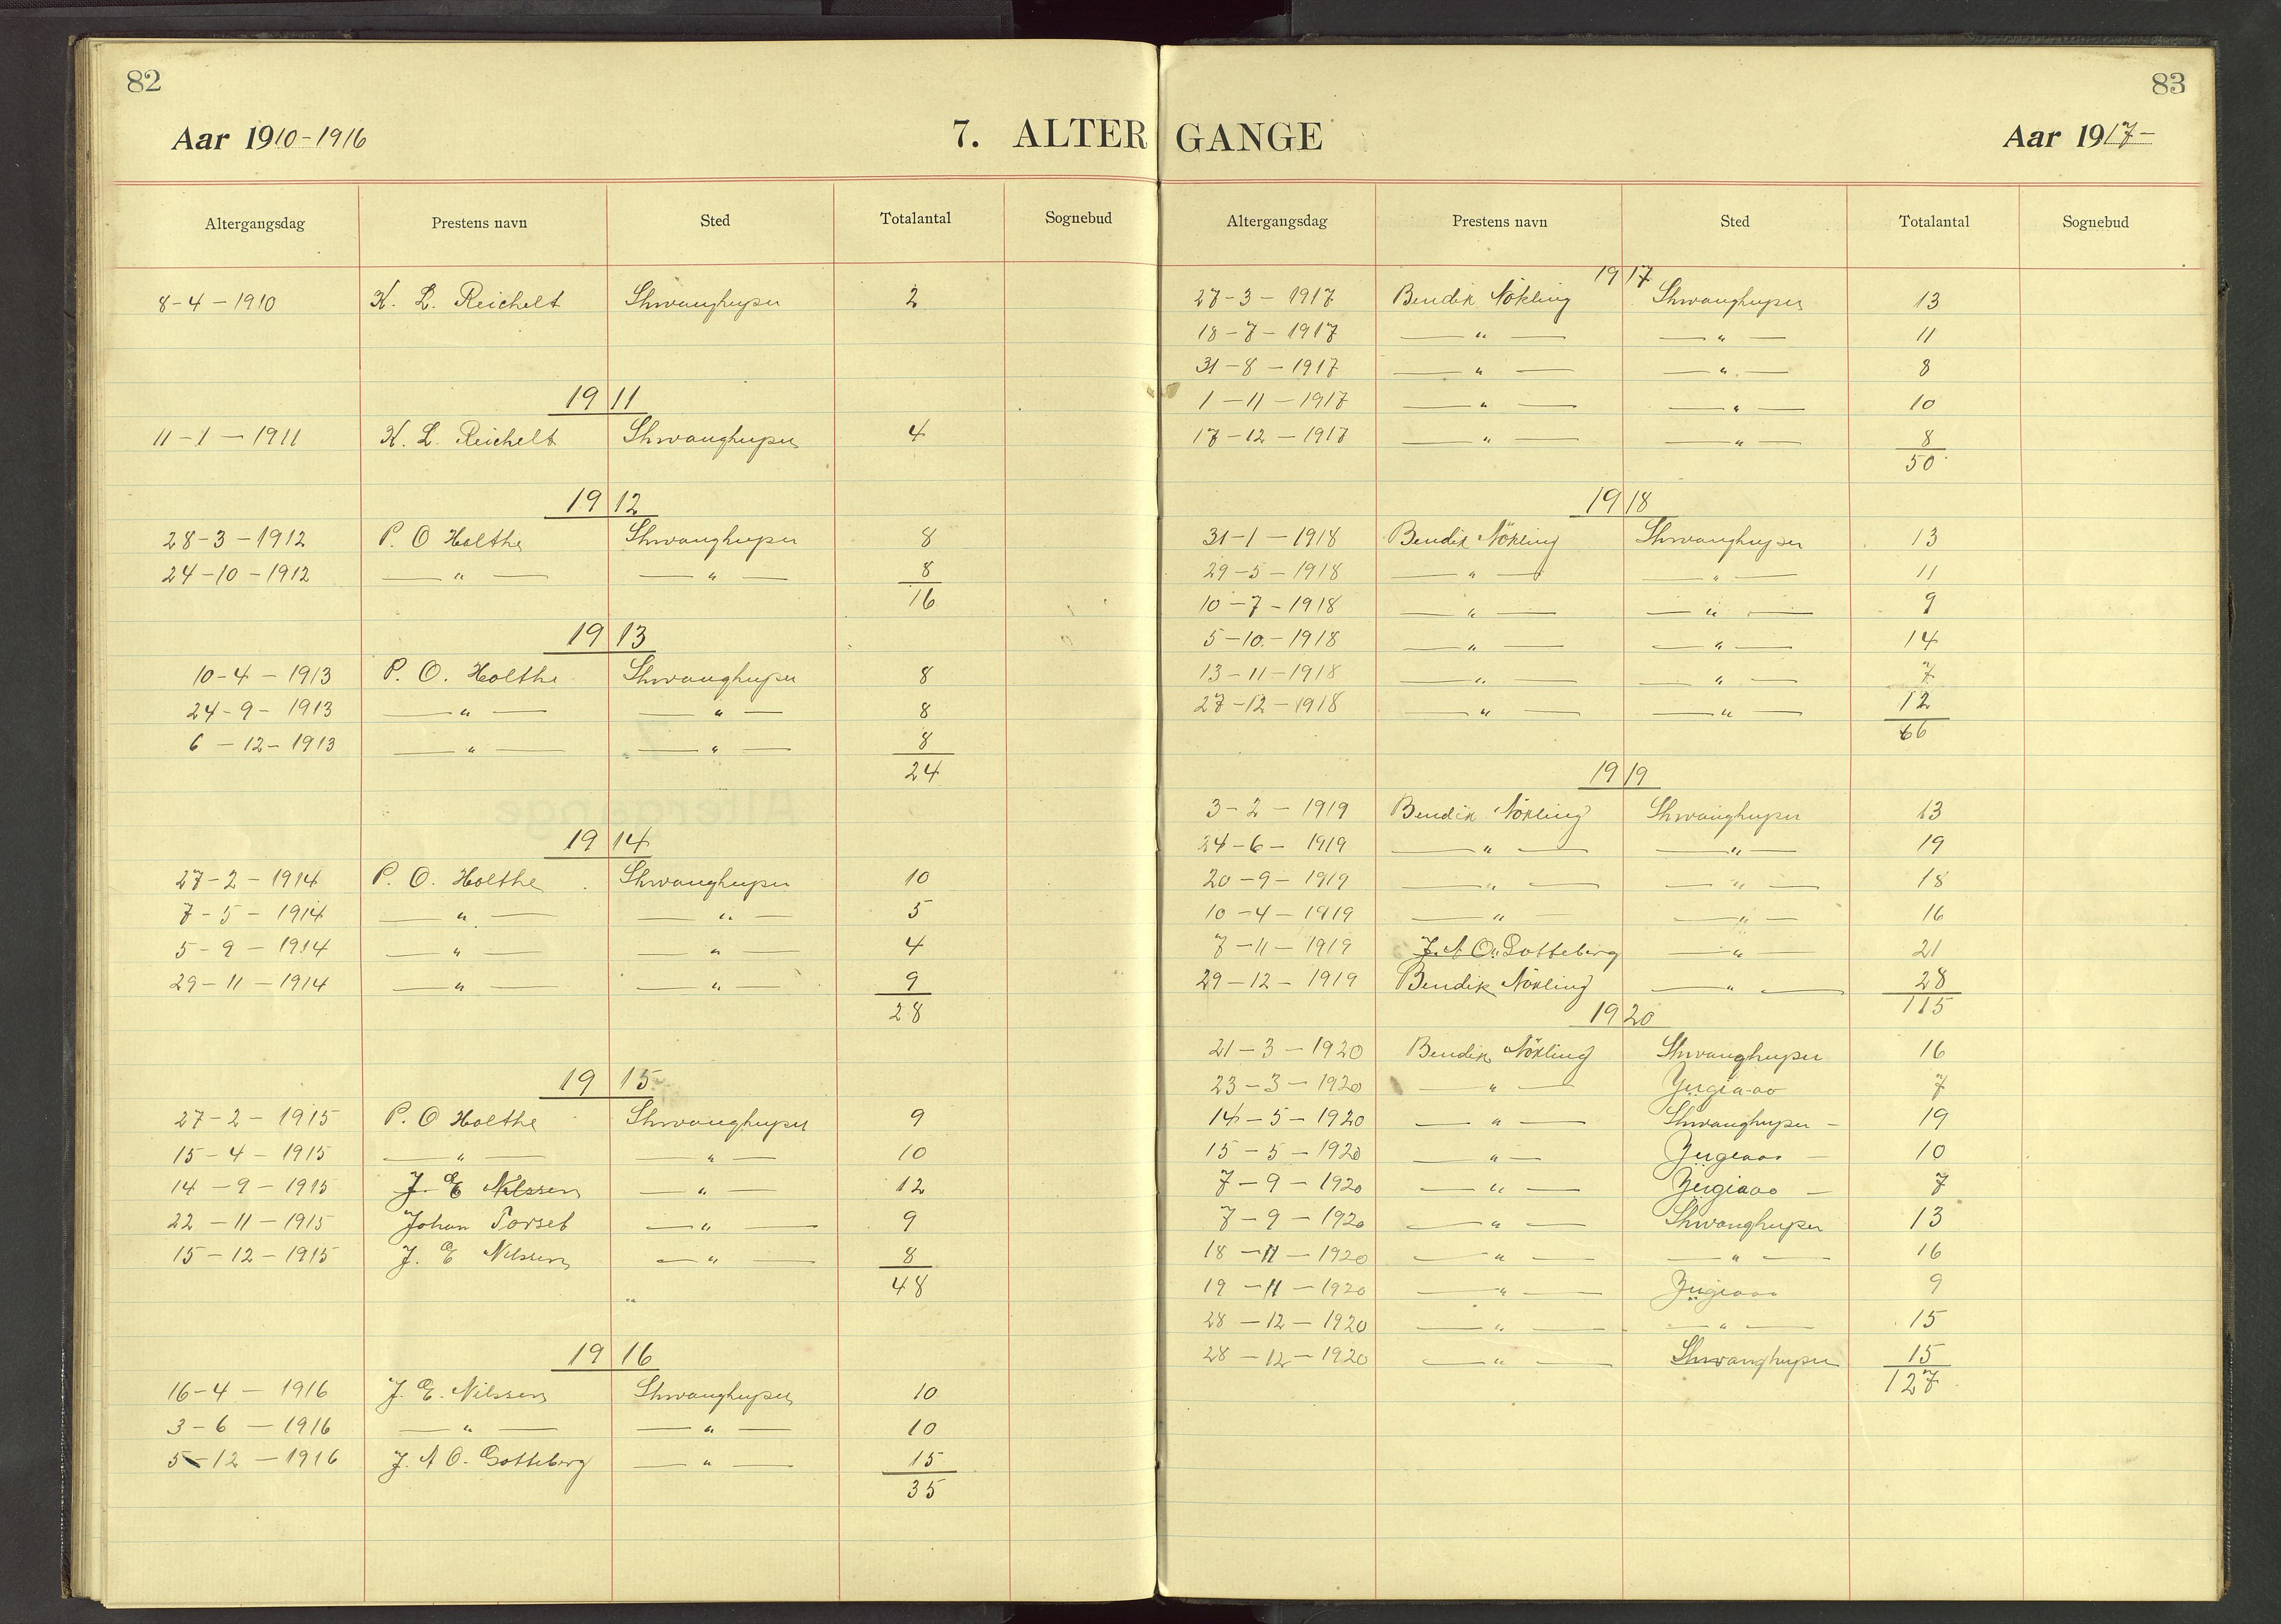 82
Aar 1910-1916
7. ALTER
Altergangsdag Prestens navn Sted Totalantal Sognebud
8-4-1910 K. L. Reichelt Shwanghupei 2
1911
11-1-1911 K. L. Reichelt Shwanghupei 4
1912
28-3-1912 P. O Holthe Shwanghupei 8
24-10-1912 —"— —"— 8
16
1913
10-4-1913 P. O. Holthe Shwanghupei 8
24-9-1913 —"— —"— 8
6-12-1913 —"— —"— 8
24
1914
27-2-1914 P. O. Holthe Shwanghupei 10
7-5-1914 —"— —"— 5
5-9-1914 —"— —"— 4
29-11-1914 —"— —"— 9
28
1915
27-2-1915 P. O Holthe Shwanghupei 9
15-4-1915 —"— —"— 10
14-9-1915 J. E Nilssen —"— 12
22-11-1915 Johan Torset —"— 9
15-12-1915 J. E Nilssen —"— 8
48
1916
16-4-1916 J. E. Nilssen Shwanghupei 10
3-6-1916 —"— —"— 10
5-12-1916 J. A O. Gotteberg —"— 15
35
83
GANGE
Aar 1917-
Altergangsdag Prestens navn Sted Totalantal Sognebud
1917
27-3-1917 Bendik Nökling Shwanghupei 13
18-7-1917 —"— —"— 11
31-8-1917 —"— —"— 8
1-11-1917 —"— —"— 10
17-12-1917 —"— —"— 8
50
1918
31-1-1918 Bendik Nökling Shwanghupei 13
29-5-1918 —"— —"— 11
10-7-1918 —"— —"— 9
5-10-1918 —"— —"— 14
13-11-1918 —"— —"— 7
27-12-1918 —"— —"— 12
66
1919
3-2-1919 Bendik Nökling Shwanghupei 13
24-6-1919 —"— —"— 19
20-9-1919 —"— —"— 18
10-4-1919 —"— —"— 16
7-11-1919 J. A O. Gotteberg —"— 21
29-12-1919 Bendik Nökling —"— 28
115
1920
21-3-1920 Bendik Nökling Shwanghupei 16
23-3-1920 —"— 7
14-5-1920 —"— Shwanghupei — 19
15-5-1920 —"— 10
7-9-1920 —"— 7
7-9-1920 —"— Shwanghupei 13
18-11-1920 —"— —"— 16
19-11-1920 —"— 9
28-12-1920 —"— —"— 15
28-12-1920 —"— Shwanghupei 15
127